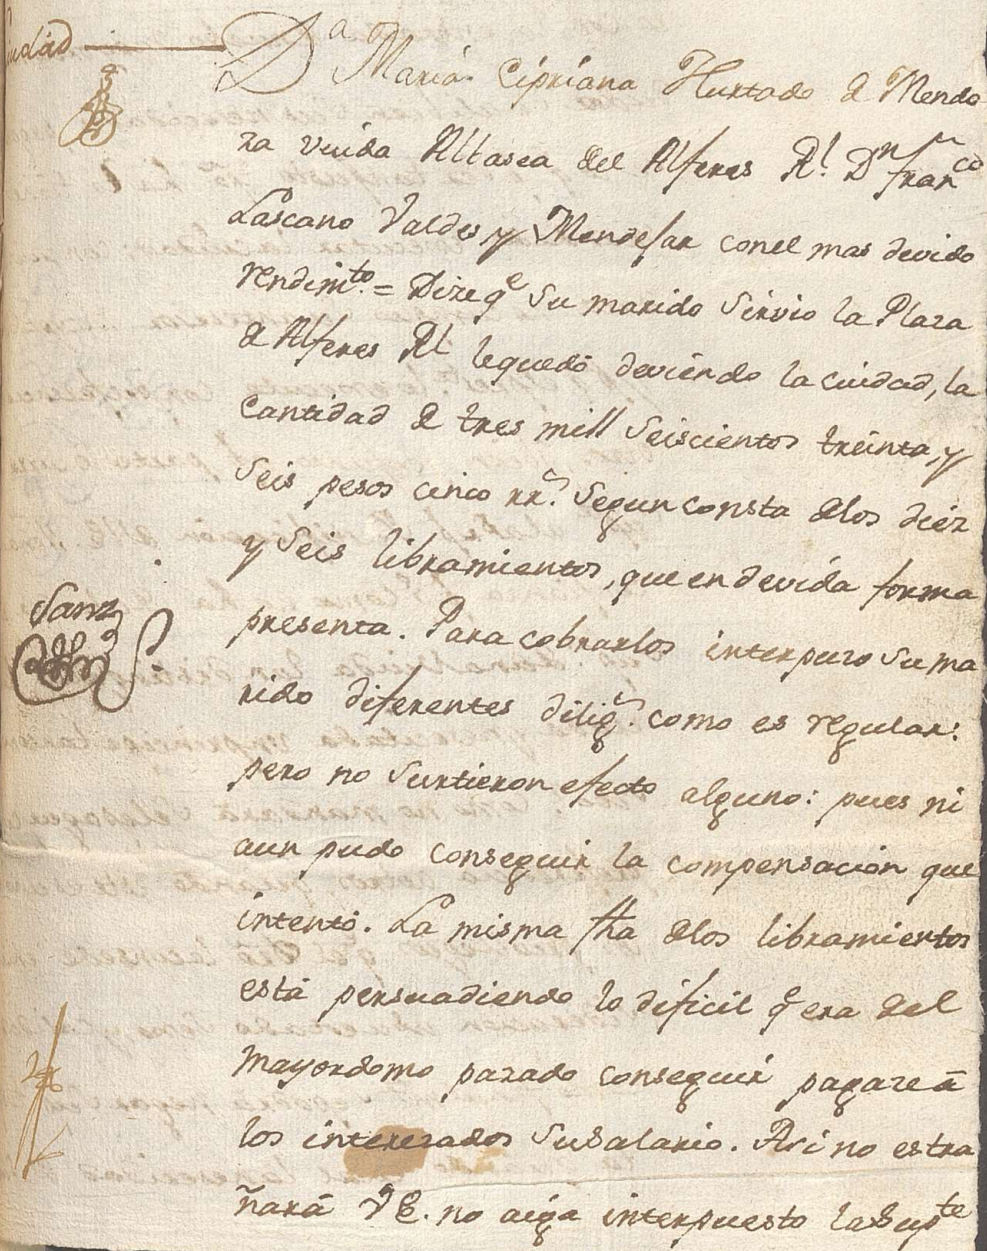 Ciudad
Dª Maria Cipriana Hurtado d Mendo
za viuda Albasea del Alferes Rl. Dn franco
Lascano Valdes y Mendefar conel mas devido
rendimto. = Dize qe su marido Sirvio la Plaza
d Alferes Rl lequedò deviendo la ciudad, la
cantidad d tres mill Seiscientos treinta, y
Seis pesos cinco rrs. Segun consta dlos diéz
y Seis libramientos, que en devida forma
presenta. Para cobrarlos interpuzo Su ma
Sanz
rido diferentes diligs. como es regular:
pero no Surtieron efecto alguno: pues ni
aun pudo conseguir la compensacion que
intentò. La misma fha dlos libramientos
està persuadiendo lo dificil qe era del
mayordomo pazado conseguir pagaze â
los interezados Su Salario. Asi no estra
ñarâ VE. no aiga interpuesto la Supte